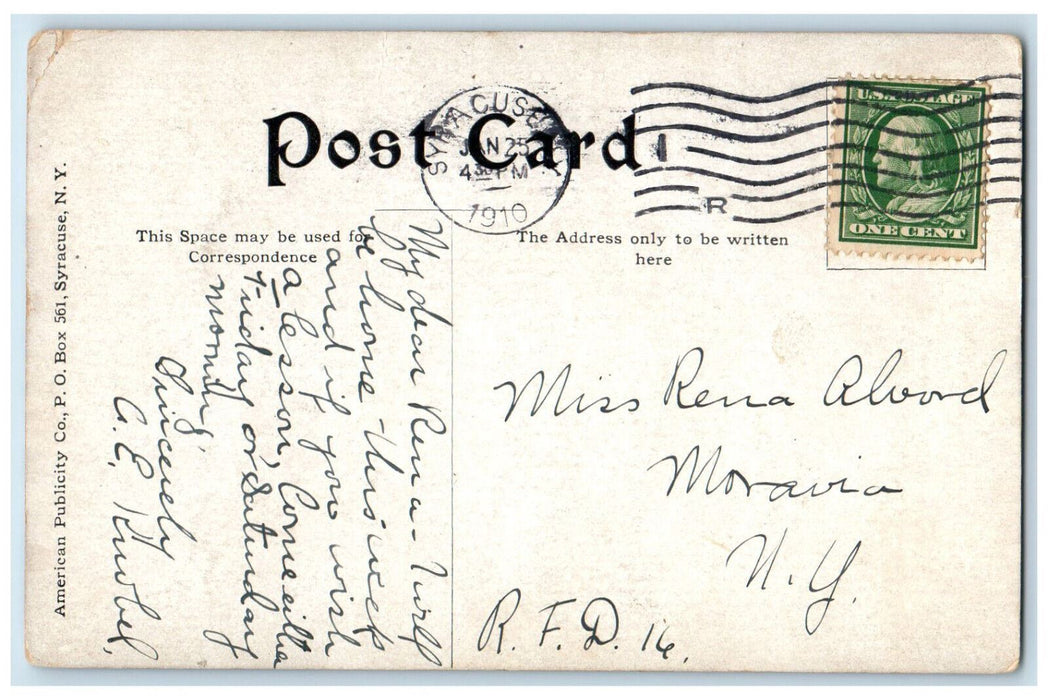 Post Card
SYRACUSE N.Y.
JAN 25
4 30 PM
1910
R
U.S. POSTAGE
ONE CENT
This Space may be used for
Correspondence
The Address only to be written
here
American Publicity Co., P. O. Box 561, Syracuse, N. Y.
My dear Rena - Will
be home this week
and if you wish
a lesson, Come either
Friday or Saturday
morning,
Sincerely
C. E.
Miss Rena Alvord
Moravia
N. Y.
R. F. D. 16.